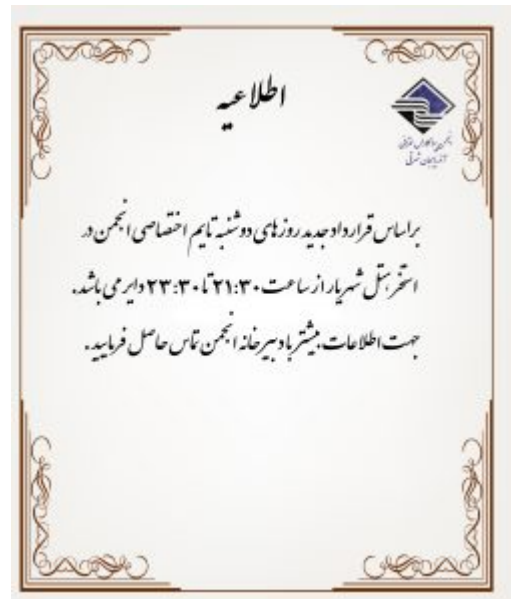 اطلاعیه
آذربایجان شرقی
براساس قرارداد جدید روزهای دوشنبه تایم اختصاصی انجمن در
استخر هتل شهریار از ساعت ۲۱:۳۰ تا ۲۳:۳۰ دایر می باشد.
جهت اطلاعات بیشتر با دبیرخانه انجمن تماس حاصل فرمایید.